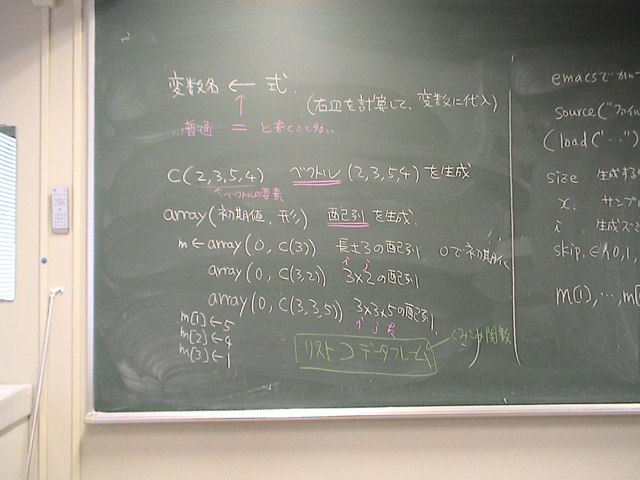 変数名 ← 式.
(右辺を計算して、変数に代入)
普通 = と書くところ..
C(2,3,5,4) ベクトル (2,3,5,4) を生成
ベクトルの要素
array(初期値, 形) 配列 を生成.
m ← array(0, C(3)) 長さ3の配列 0で初期化
array(0, C(3,2)) 3×2の配列
i j
array(0, C(3,3,5)) 3×3×5の配列
i j k
m[1] ← 5
m[2] ← 4
m[3] ← 1
リスト ⊃ データフレーム
関数
emacsで
source("ファイル
(load("…")
size 生成する
x. サンプル
i 生成
skip. ∈ 0,1,
m[1], …, m[